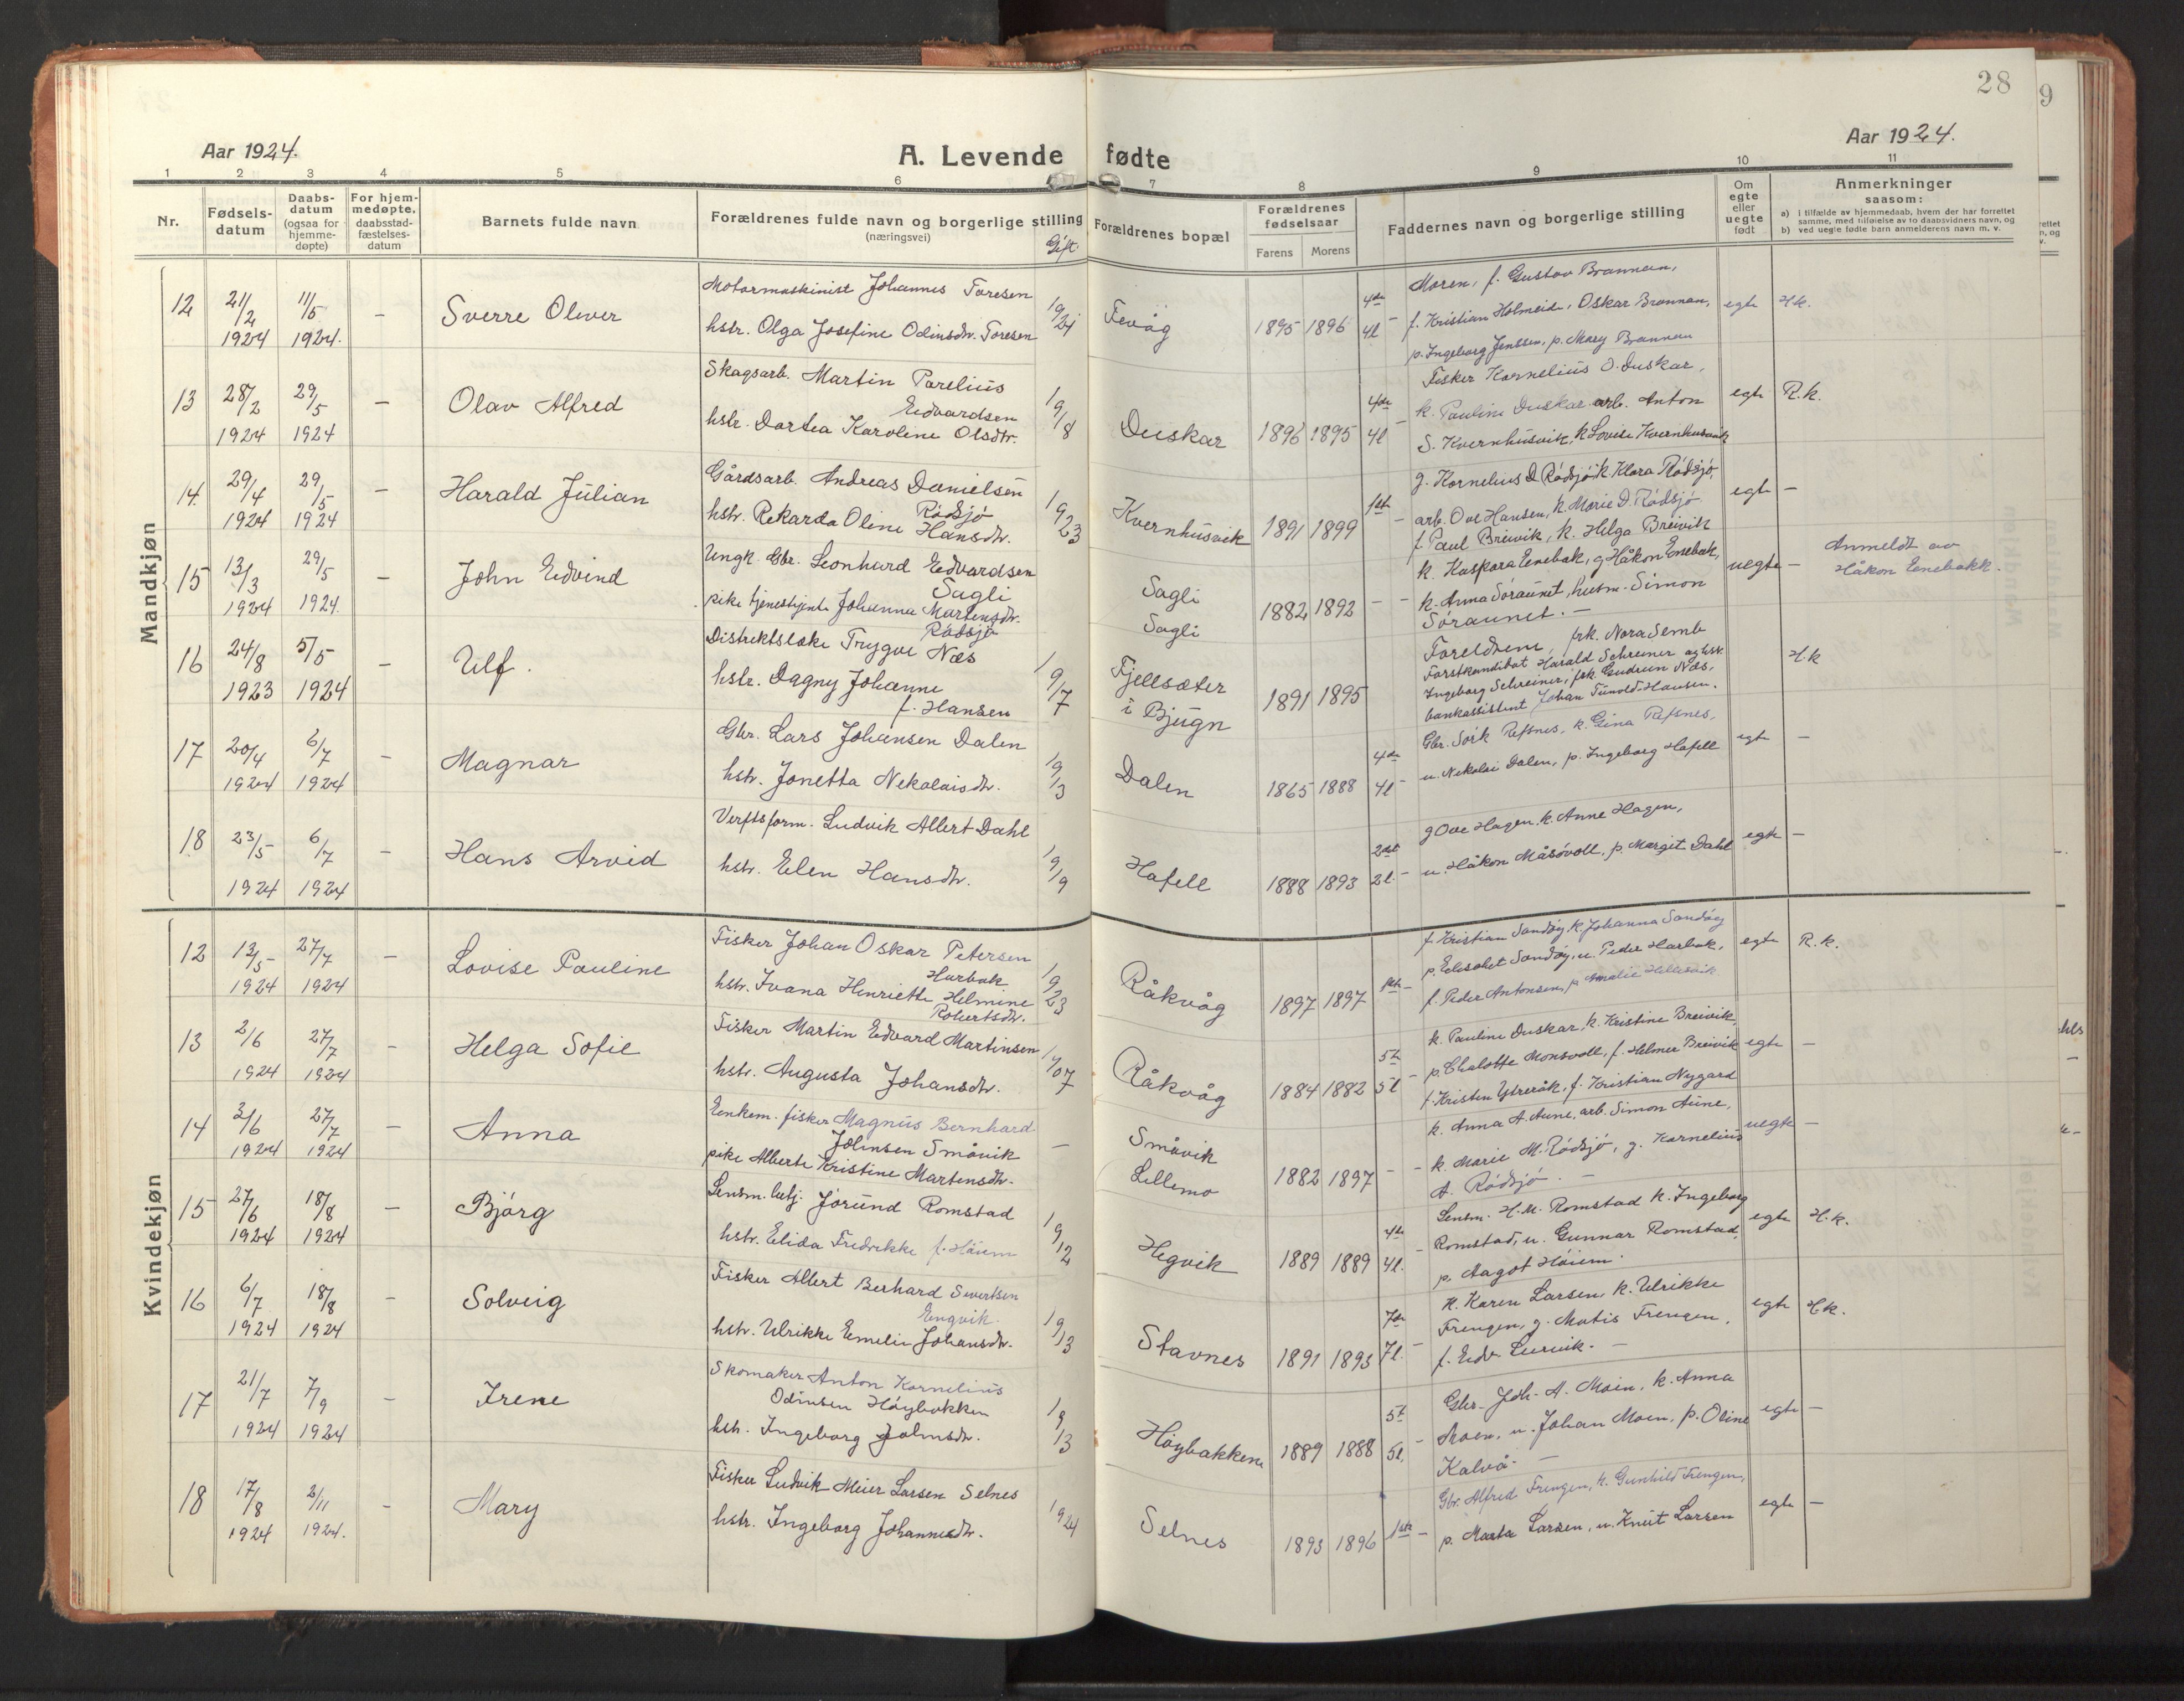 28
9
Aar 1924.
A. Levende fødte
Aar 1924.
1 2 3 4 5 6 7 8 9 10 11
Nr.
Fødsels-
datum
Daabs-
datum
(ogsaa for
hjemme-
døpte)
For hjem-
medøpte,
daabsstad-
fæstelses-
datum
Barnets fulde navn
Forældrenes fulde navn og borgerlige stilling
(næringsvei)
Gift.
Forældrenes bopæl
Forældrenes
fødselsaar
Farens Morens
Faddernes navn og borgerlige stilling
Om
egte
eller
uegte
født
Anmerkninger
saasom:
a) i tilfælde av hjemmedaab, hvem der har forrettet
samme, med tilføielse av to daabsvidners navn, og
b) ved uegte fødte barn anmelderens navn m. v.
Mandkjøn
12 21/2 1924 11/5 1924. - Sverre Oliver
Motormaskinist Johannes Toresen
hstr. Olga Josefine Odinsdtr. Toresen
1921 Fevåg 1895 1896 4de 4l -
Moren, f. Gustav Brannan,
f. Kristian Holmeid, Oskar Brannan,
p. Ingeborg Jenssen, p. Mary Brannan
egte H.k.
13 28/2 1924 29/5 1924 - Olav Alfred
Skogsarb. Martin Parelius
Edvardsen
hstr. Dortea Karoline Olsdtr.
19/18 Duskar 1896 1895 4de 4l -
Fisker Kornelius O. Duskar,
k. Pauline Duskar arb. Anton
S. Kvernhusvik, k Lovise Kvernhusvik
egte R.k.
14. 29/4 1924 29/5 1924 - Harald Julian
Gårdsarb. Andreas Danielsen
Rødsjø
hstr. Rekarda Oline Hansdtr.
1923 Kvernhusvik 1891 1899 1ste -
g. Kornelius D Rødsjø k Klara Rødsjø,
arb. Ove Hansen, k. Marie D. Rødsjø
f. Paul Breivik, k. Helga Breivik
egte -
15 13/3 1924 29/5 1924. - John Edvind
Ungk. Gbr. Leonhard Edvardsen
Sagli
pike tjenestejente Johanna Martensdtr.
Rødsjø
Sagli
Sagli
1882 1892 - -
k. Kaspara Enebak, g Håkon Enebak,
k. Anna Søraunet, husm. Simon
Søraunet. -
uegte - Anmeldt av
Håkon Enebakk.
16 24/8 1923 5/5 1924 - Ulf.
Distriktslæke Trygve Næs
hstr. Dagny Johanne
f. Hansen
19/17 Fjellsæter
i Bjugn
1891 1895
Foreldrene, frk. Nora Semb
Forstkandidat Harald Schreiner og hsk
Ingeborg Schreiner, frk. Gudrun Næs,
bankassistent Johan Hansen.
H.k
17 20/4 1924 6/7 1924 - Magnar
Gbr. Lars Johansen Dalen
hstr. Jonetta Nekolaisdtr.
19/13 Dalen 1865 1888 4de 4l -
Gbr. Refsnes, k. Gina Refsnes,
u. Nekolai Dalen, p. Ingeborg Hafell
egte -
18 23/5 1924 6/7 1924 - Hans Arvid
Verftsform. Ludvik Albert Dahl
hstr. Elen Hansdtr.
19/19 Hafell 1888 1893 2det 2l. -
g Ove Hagen, k. Anne Hagen,
u. Håkon Måsøvoll, p. Margit Dahl
egte -
Kvindekjøn
12 13/5 1924 27/7 1924 - Lovise Pauline
Fisker Johan Oskar Petersen
Harbak
hstr. Ivana Henriette Helmine
Robertsdtr.
1923 Råkvåg 1897 1897 1ste -
f. Kristian Sandøy k Johanna Sandøy
p. Elisabet Sandøy, u. Peder Harbak,
f. Peder Antonsen, p Amalie
egte R.k.
13 2/6 1924 27/7 1924 - Helga Sofie
Fisker Martin Edvard Martinsen
hstr. Augusta Johansdtr.
Råkvåg 1884 1882 5t 5l -
k. Pauline Duskar, k. Kristine Breivik,
p. Chalotte Monsvoll, f. Helmer Breivik
f. Kristen Ytreråk, f. Kristian Nygard
egte -
14 3/6 1924 27/7 1924 - Anna
Enkem. fisker Magnus Bernhard
Johnsen Småvik
pike Alberte Kristine Martensdtr.
- Småvik
Lillemo
1882 1897 - -
k. Anna A. Aune, arb. Simon Aune,
k. Marie M. Rødsjø, g. Kornelius
A. Rødsjø. -
uegte -
15 27/6 1924 18/8 1924 - Bjørg
Lensm. betj. Jorund Romstad
hstr. Elida Fredrikke f. Høiem
1912 Hegvik 1889 1889 4de 4l. -
Lensm. H. M. Romstad k. Ingeborg
Romstad, u. Gunnar Romstad,
p. Aagot Høiem.
egte H.k.
16 6/7 1924 18/8 1924 - Solveig
Fisker Albert Berhard Sivertsen
Engvik.
hstr. Ulrikke Emelie Johansdtr.
1913 Stavnes 1891 1893 7de 7l. -
K. Karen Larsen, k. Ulrikke
Frengen, g. Matis Frengen,
f. Edv. -
egte H.k.
17 21/7 1924 7/9 1924 - Irene
Skomaker Anton Kornelius
Odinsen Høybakken
hstr. Ingeborg Johnsdtr.
1913 Høybakken 1889 1888 5t 5l. -
Gbr. Joh. A. Moen, k. Anna
Moen, u. Johan Moen, p. Oline
Kalvå. -
egte -
18 17/8 1924 2/11 1924. - Mary
Fisker Ludvik Meier Larsen Selnes
hstr. Ingeborg Johannesdtr.
1924 Selnes 1893 1896 1ste -
Gbr. Alfred Frengen, k. Gunhild Frengen,
p. Marta Larsen, u. Knut Larsen
egte -